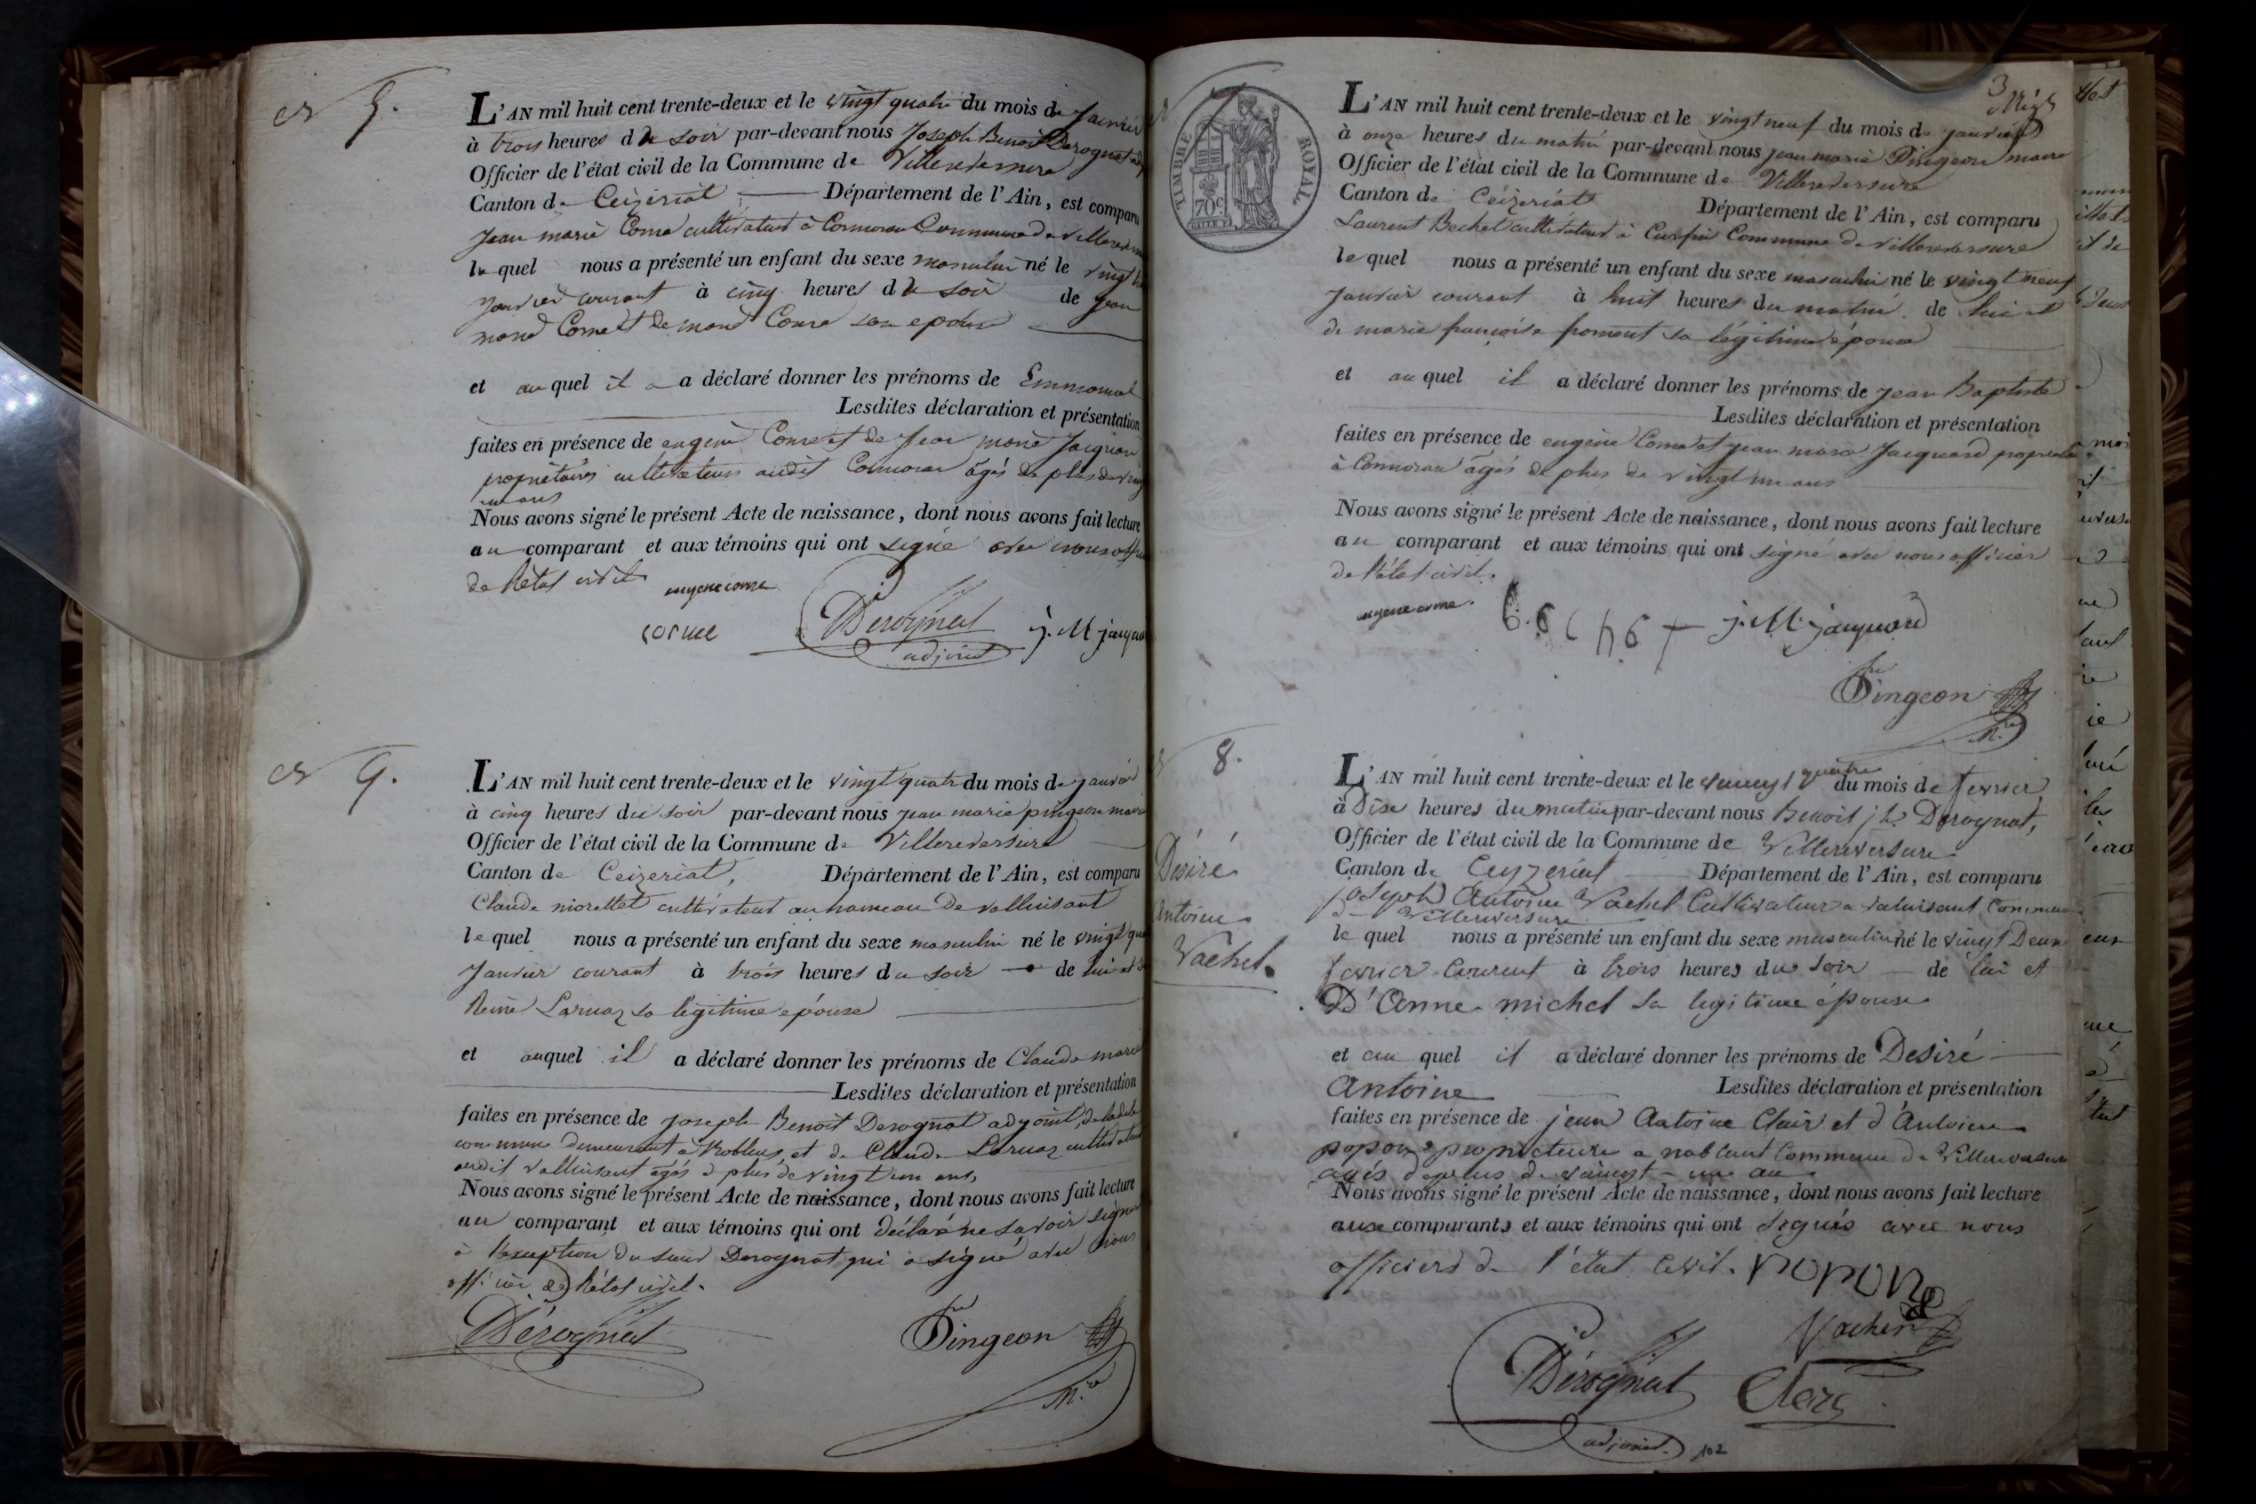 5.
L'AN mil huit cent trente-deux et le vingt quatre du mois de Janvier
à trois heures du soir par-devant nous Joseph Benoit Derognat
Officier de l'état civil de la Commune de Villereversure
Canton de Ceizeriat Département de l'Ain, est comparu
Jean marie Come cultivateur à Cormoran Commune de Villereversure
le quel nous a présenté un enfant du sexe masculin né le vingt
Janvier courant à cinq heures du soir de Jean
Come et de Come son epouse
et au quel il a a déclaré donner les prénoms de Emmanuel
Lesdites déclaration et présentation
faites en présence de eugene Come et de Jean marie Jacquard
propriétaires cultivateurs audit Cormoran âgés de plus de vingt
un ans
Nous avons signé le présent Acte de naissance, dont nous avons fait lecture
au comparant et aux témoins qui ont signé avec nous officier
de l'état civil
eugene come
come Derognat j. M jacquard
adjoint
L'AN mil huit cent trente-deux et le vingt quatre du mois de janvier
à cinq heures du soir par-devant nous jean marie pingeon maire
Officier de l'état civil de la Commune de Villereversure
Canton de Ceizeriat, Département de l'Ain, est comparu
Claude morellet cultivateur au hameau de valluisant
le quel nous a présenté un enfant du sexe masculin né le vingt quatre
Janvier courant à trois heures du soir de lui et de
Reine Laruaz sa légitime épouse
et auquel il a déclaré donner les prénoms de Claude marie
Lesdites déclaration et présentation
faites en présence de joseph Benoit Derognat adjoint de ladite
commune demeurant à Noblens, et de Claude Laruaz cultivateur
audit valluisant agés de plus de vingt un ans,
Nous avons signé le présent Acte de naissance, dont nous avons fait lecture
au comparant et aux témoins qui ont déclaré ne savoir signer
à l'exception du sieur Derognat qui a signé avec nous
officier de l'état civil.
Derognat Pingeon
m.re
3
L'AN mil huit cent trente-deux et le vingt neuf du mois de janvier
à onze heures du matin par-devant nous jean marie Pingeon maire
Officier de l'état civil de la Commune de Villereversure
Canton de Ceizeriat Département de l'Ain, est comparu
Laurent Bechet cultivateur à Curfin Commune de Villereversure
le quel nous a présenté un enfant du sexe masculin né le vingt neuf
Janvier courant à huit heures du matin de lui et
de marie françoise froment sa légitime épouse
et au quel il a déclaré donner les prénoms de jean Baptiste
Lesdites déclaration et présentation
faites en présence de eugène Come et jean marie Jacquard
à Cormoran âgés de plus de vingt un ans
Nous avons signé le présent Acte de naissance, dont nous avons fait lecture
au comparant et aux témoins qui ont signé avec nous officier
de l'état civil.
eugene come. j. M. jacquard
Pingeon
m.re
TIMBRE ROYAL
70 c
8.
Désiré
Antoine
Vachet.
L'AN mil huit cent trente-deux et le vingt quatre du mois de fevrier
à Dix heures du matin par-devant nous Benoit jh Derognat,
Officier de l'état civil de la Commune de Villereversure
Canton de Ceyzeriat Département de l'Ain, est comparu
joseph Antoine Vachet Cultivateur a valuisant Commune
de Villereversure
le quel nous a présenté un enfant du sexe masculin né le vingt Deux
fevrier Courent à trois heures du soir de lui et
D'Anne michel sa legitime épouse
et au quel il a déclaré donner les prénoms de Desiré
Antoine Lesdites déclaration et présentation
faites en présence de jean Antoine Clair et d'Antoine
popon propricteure a noblant Commune de Villereversure
agés de plus de vaingt-un an
Nous avons signé le présent Acte de naissance, dont nous avons fait lecture
aux comparants et aux témoins qui ont signés avec nous
officiers de l'état Civil. popon
Vachet
Derognat Clerc
adjoint. 102